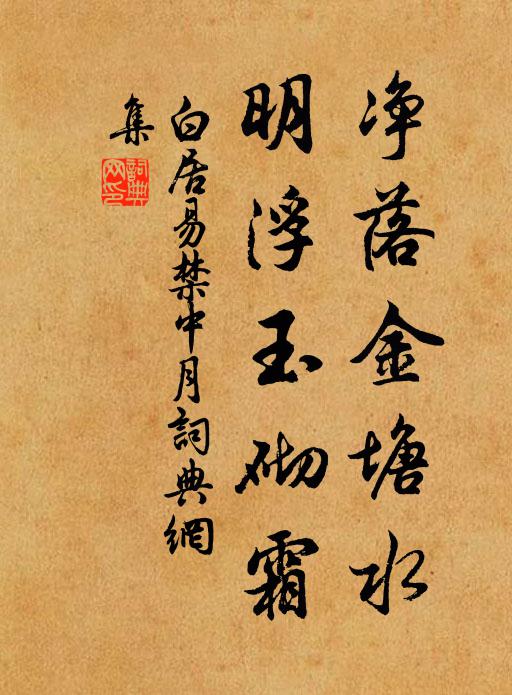 净落金塘水
明浮玉砌霜
白居易禁中月詞典網
集
詞典網印